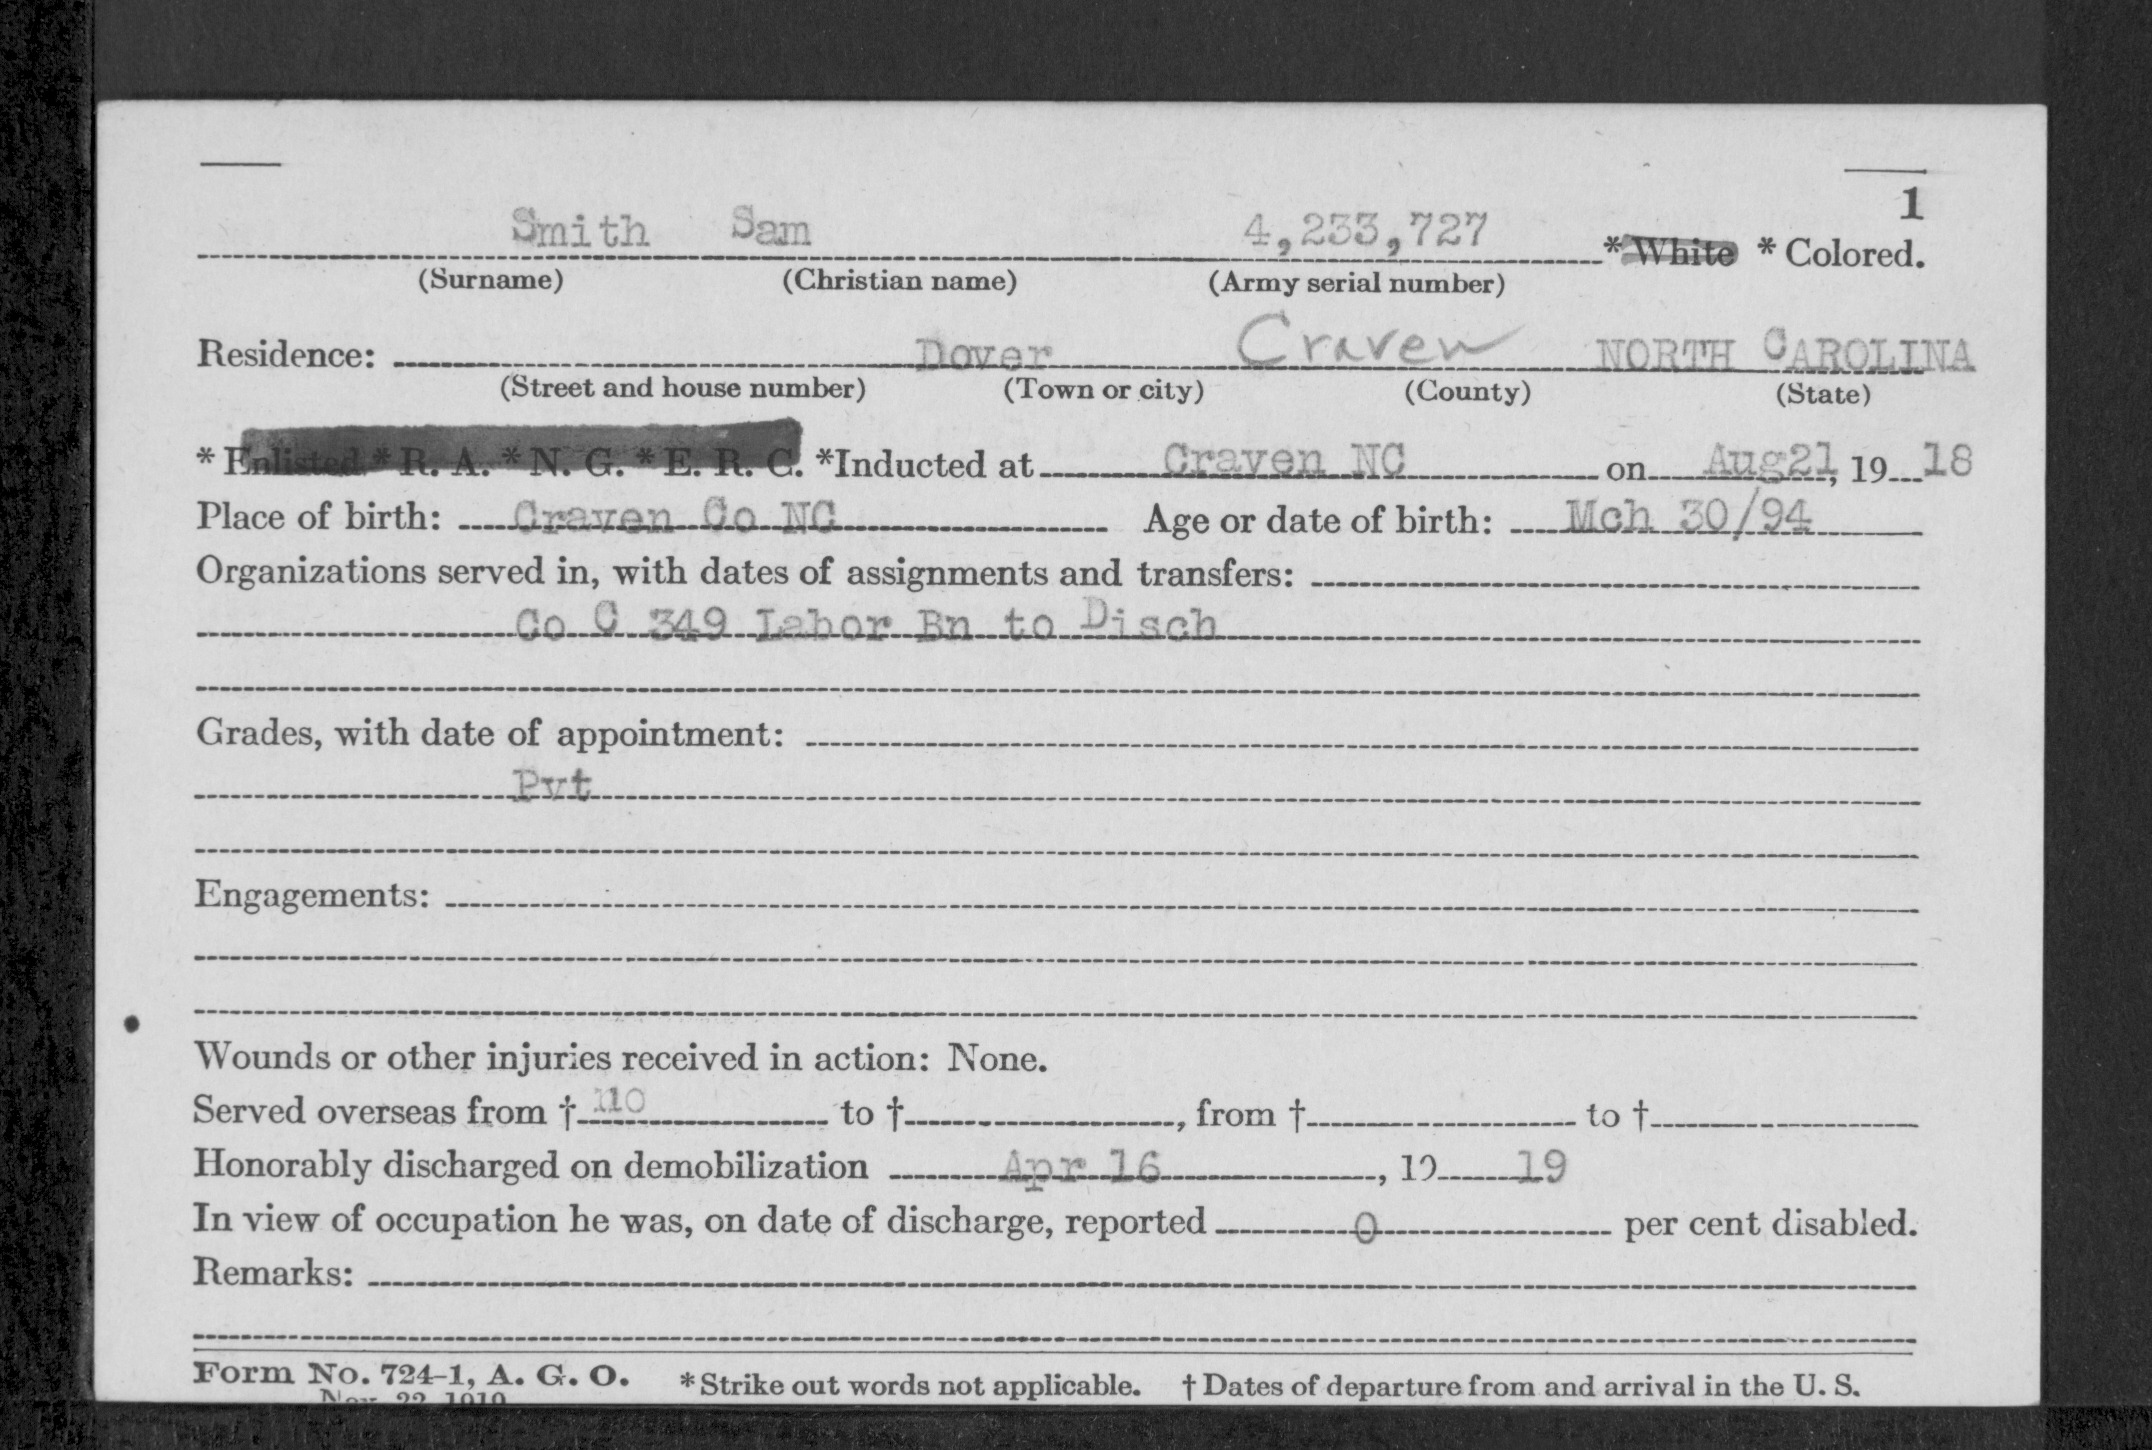 1
Smith Sam 4,233,727 * White * Colored.
(Surname) (Christian name) (Army serial number)
Residence: Dover Craven NORTH CAROLINA
(Street and house number) (Town or city) (County) (State)
* Enlisted * R. A. * N. G. * E. R. C. *Inducted at Craven NC on Aug21, 19 18
Place of birth: Craven Co NC Age or date of birth: Mch 30/94
Organizations served in, with dates of assignments and transfers:
Co C 349 Labor Bn to Disch
Grades, with date of appointment:
Pvt
Engagements:
Wounds or other injuries received in action: None.
Served overseas from † no to †, from † to †
Honorably discharged on demobilization Apr 16, 19 19
In view of occupation he was, on date of discharge, reported 0 per cent disabled.
Remarks:
Form No. 724-1, A. G. O. * Strike out words not applicable. † Dates of departure from and arrival in the U. S.
Nov. 22 1919